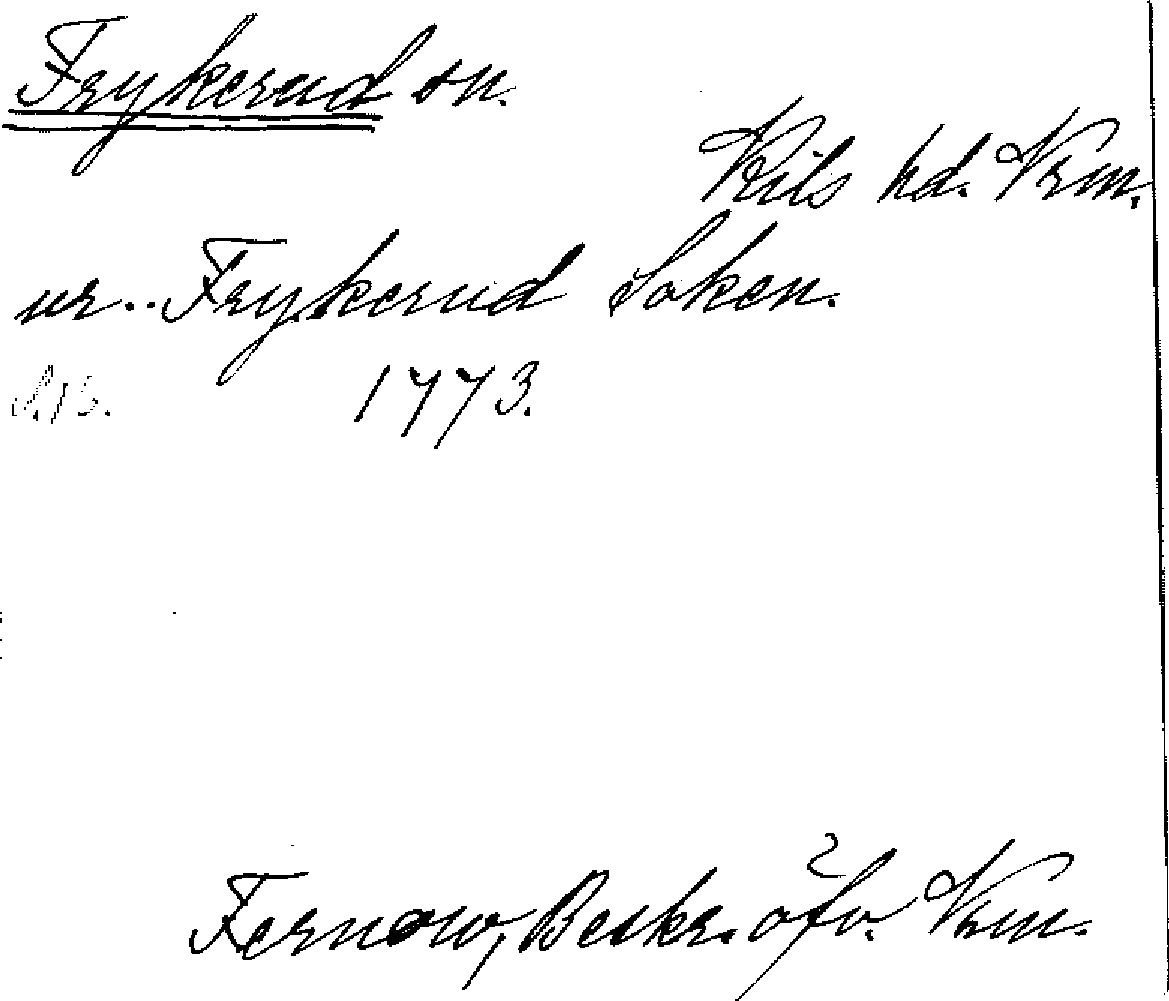 Frykerud sn.
Kils hd. Vrm.
ur.. Frykerud Soken.
1773.
Fernow, Beskr. öfv. Vrm.